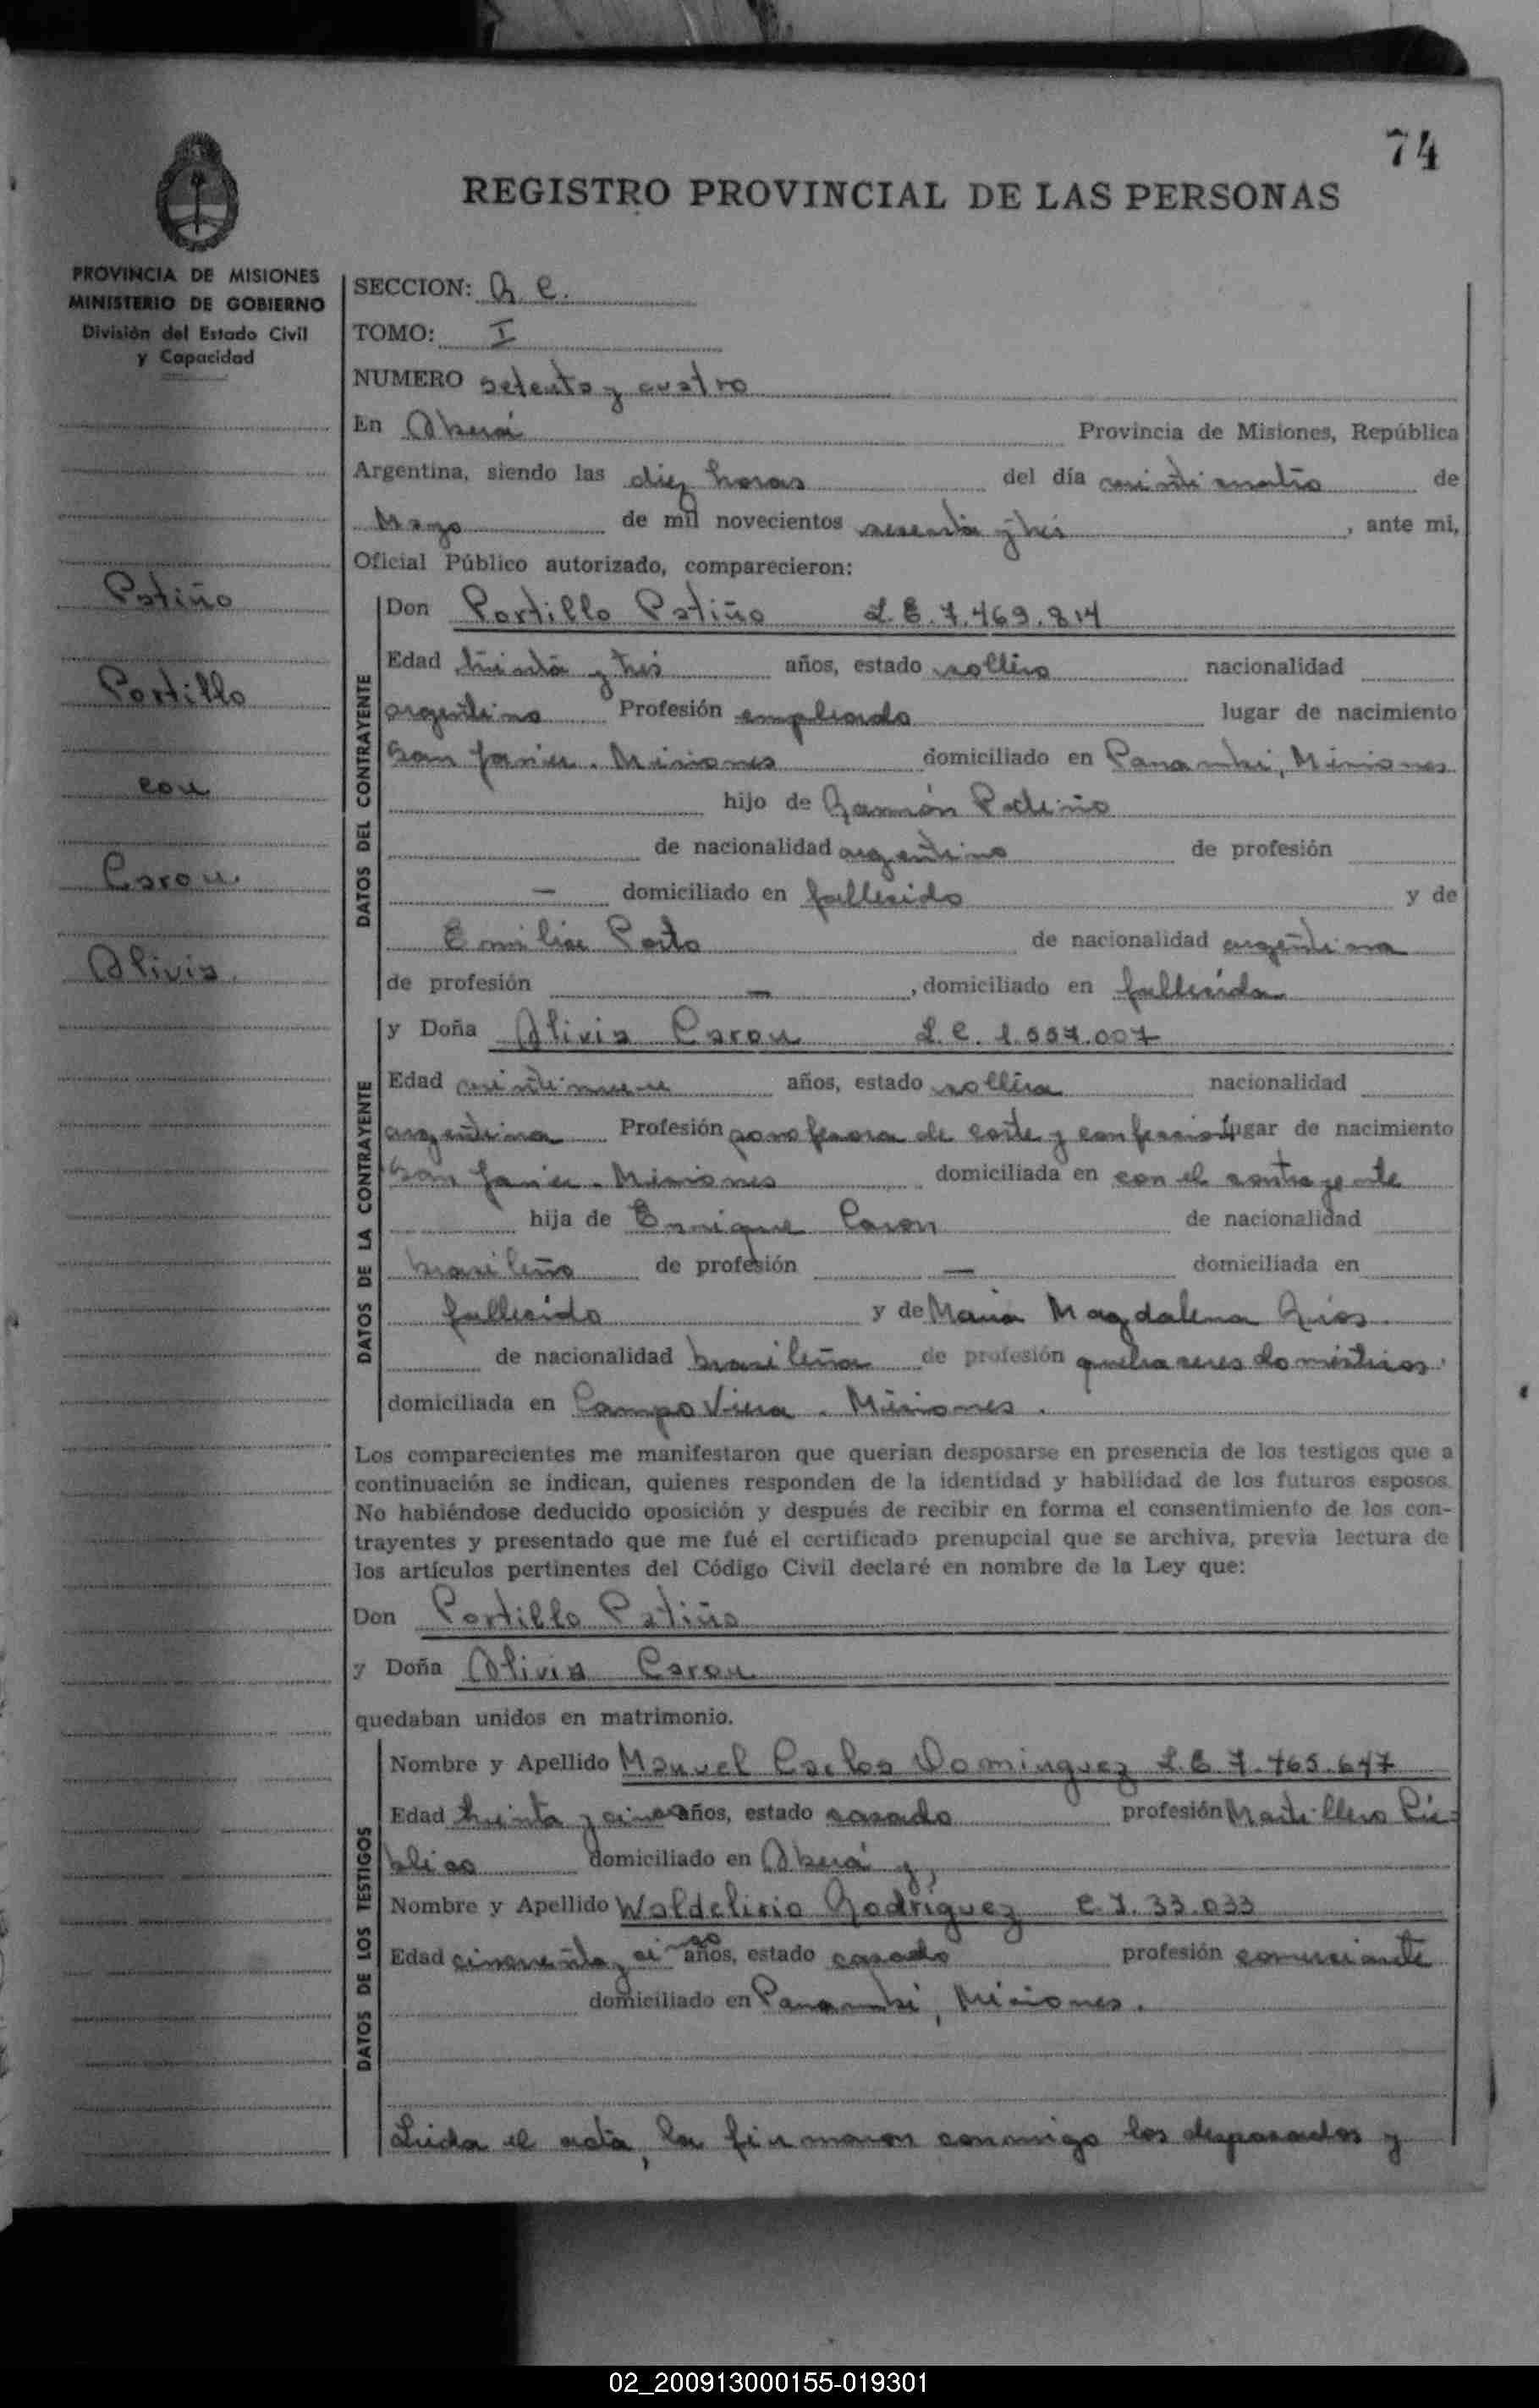 74
REGISTRO PROVINCIAL DE LAS PERSONAS
PROVINCIA DE MISIONES
MINISTERIO DE GOBIERNO
División del Estado Civil
y Capacidad
Patiño
Portillo
con
Carou
Olivia
SECCION:
TOMO: I
NUMERO setenta y cuatro
En Oberá Provincia de Misiones, República
Argentina, siendo las diez horas del día veinticuatro de
Mayo de mil novecientos sesenta y tres, ante mi,
Oficial Público autorizado, comparecieron:
DATOS DEL CONTRAYENTE
Don Portillo Patiño L.E. 7.469.814
Edad treinta y tres años, estado soltero nacionalidad
argentino Profesión empleado lugar de nacimiento
San Javier. Misiones domiciliado en Panambi, Misiones
hijo de Ramón Patiño
de nacionalidad argentino de profesión
— domiciliado en fallecido y de
Emilia de nacionalidad argentina
de profesión —, domiciliado en fallecida
DATOS DE LA CONTRAYENTE
y Doña Olivia Carou L.C. 1.557.007
Edad veintinueve años, estado soltera nacionalidad
argentina Profesión profesora de corte y confección lugar de nacimiento
San Javier. Misiones domiciliada en con el contrayente
hija de Enrique Carou de nacionalidad
brasileño de profesión — domiciliada en
fallecido y de Maria Magdalena Rios
de nacionalidad brasileña de profesión quehaceres domésticos.
domiciliada en Campo Viera. Misiones.
Los comparecientes me manifestaron que querían desposarse en presencia de los testigos que a
continuación se indican, quienes responden de la identidad y habilidad de los futuros esposos.
No habiéndose deducido oposición y después de recibir en forma el consentimiento de los con-
trayentes y presentado que me fué el certificado prenupcial que se archiva, previa lectura de
los artículos pertinentes del Código Civil declaré en nombre de la Ley que:
Don Portillo Patiño
y Doña Olivia Carou
quedaban unidos en matrimonio.
DATOS DE LOS TESTIGOS
Nombre y Apellido Manuel Carlos Dominguez L.E. 7.465.647
Edad treinta y cinco años, estado casado profesión Martillero Pú-
blico domiciliado en Oberá y,
Nombre y Apellido Waldelirio Rodriguez C.I. 33.033
Edad cincuenta y cinco años, estado casado profesión comerciante
domiciliado en Panambi, Misiones.
Leida el acta, la firmaron conmigo los desposados y
02_200913000155-019301